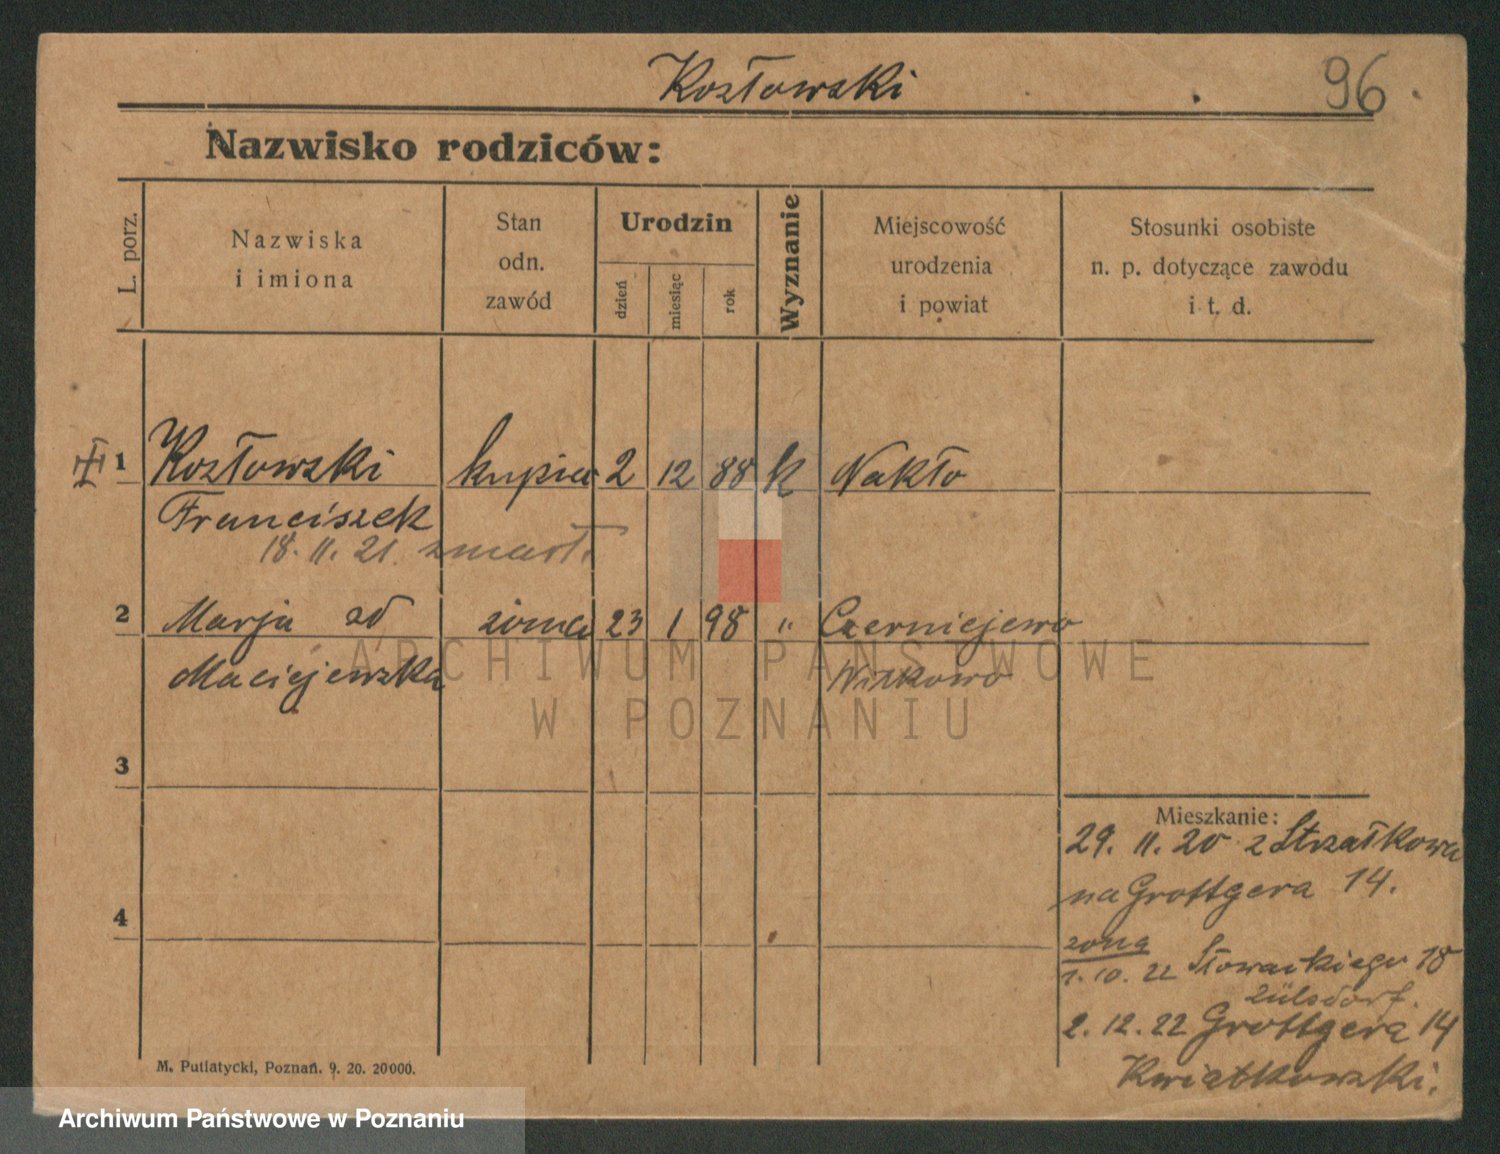 Kozłowski 96
Nazwisko rodziców:
L. porz.
Nazwiska
i imiona
Stan
odn.
zawód
Urodzin
dzień
miesiąc
rok
Wyznanie
Miejscowość
urodzenia
i powiat
Stosunki osobiste
n. p. dotyczące zawodu
i t. d.
1 Kozłowski kupiec 2 12 88 k Nakło
Franciszek
18. 11. 21. zmarł.
2 Marja zd żona 23 1 98 " Czerniejewo
Maciejewska Witkowo
ARCHIWUM PAŃSTWOWE
W POZNANIU
3
Mieszkanie:
29. 11. 20 z Strzałkowa
na Grottgera 14.
4
żona
1. 10. 22 Słowackiego 18
Lülsdorf.
2. 12. 22 Grottgera 14
Kwiatkowski.
M. Putiatycki, Poznań. 9. 20. 20000.
Archiwum Państwowe w Poznaniu